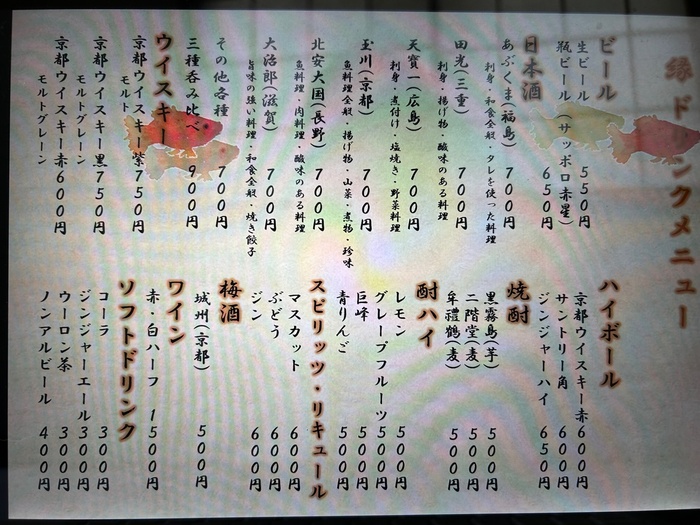 縁ドリンクメニュー
ビール
生ビール 550円
瓶ビール(サッポロ赤星) 650円
日本酒
あぶくま(福島) 700円
刺身・和食全般・タレを使った料理
田光(三重) 700円
刺身・揚げ物・酸味のある料理
天寶一(広島) 700円
刺身・煮付け・塩焼き・野菜料理
玉川(京都) 700円
魚料理全般・揚げ物・山菜・煮物・珍味
北安大国(長野) 700円
魚料理・肉料理・酸味のある料理
大治郎(滋賀) 700円
旨味の強い料理・和食全般・焼き餃子
その他各種 700円
三種呑み比べ 900円
ウイスキー
京都ウイスキー紫 750円
モルト
京都ウイスキー黒 750円
モルトグレーン
京都ウイスキー赤 600円
モルトグレーン
ハイボール
京都ウイスキー赤 600円
サントリー角 600円
ジンジャーハイ 650円
焼酎
黒霧島(芋) 500円
二階堂(麦) 500円
牟禮鶴(麦) 500円
酎ハイ
レモン 500円
グレープフルーツ 500円
巨峰 500円
青りんご 500円
スピリッツ・リキュール
マスカット 600円
ぶどう 600円
ジン 600円
梅酒
城州(京都) 500円
ワイン
赤・白ハーフ 1500円
ソフトドリンク
コーラ 300円
ジンジャーエール 300円
ウーロン茶 300円
ノンアルビール 400円